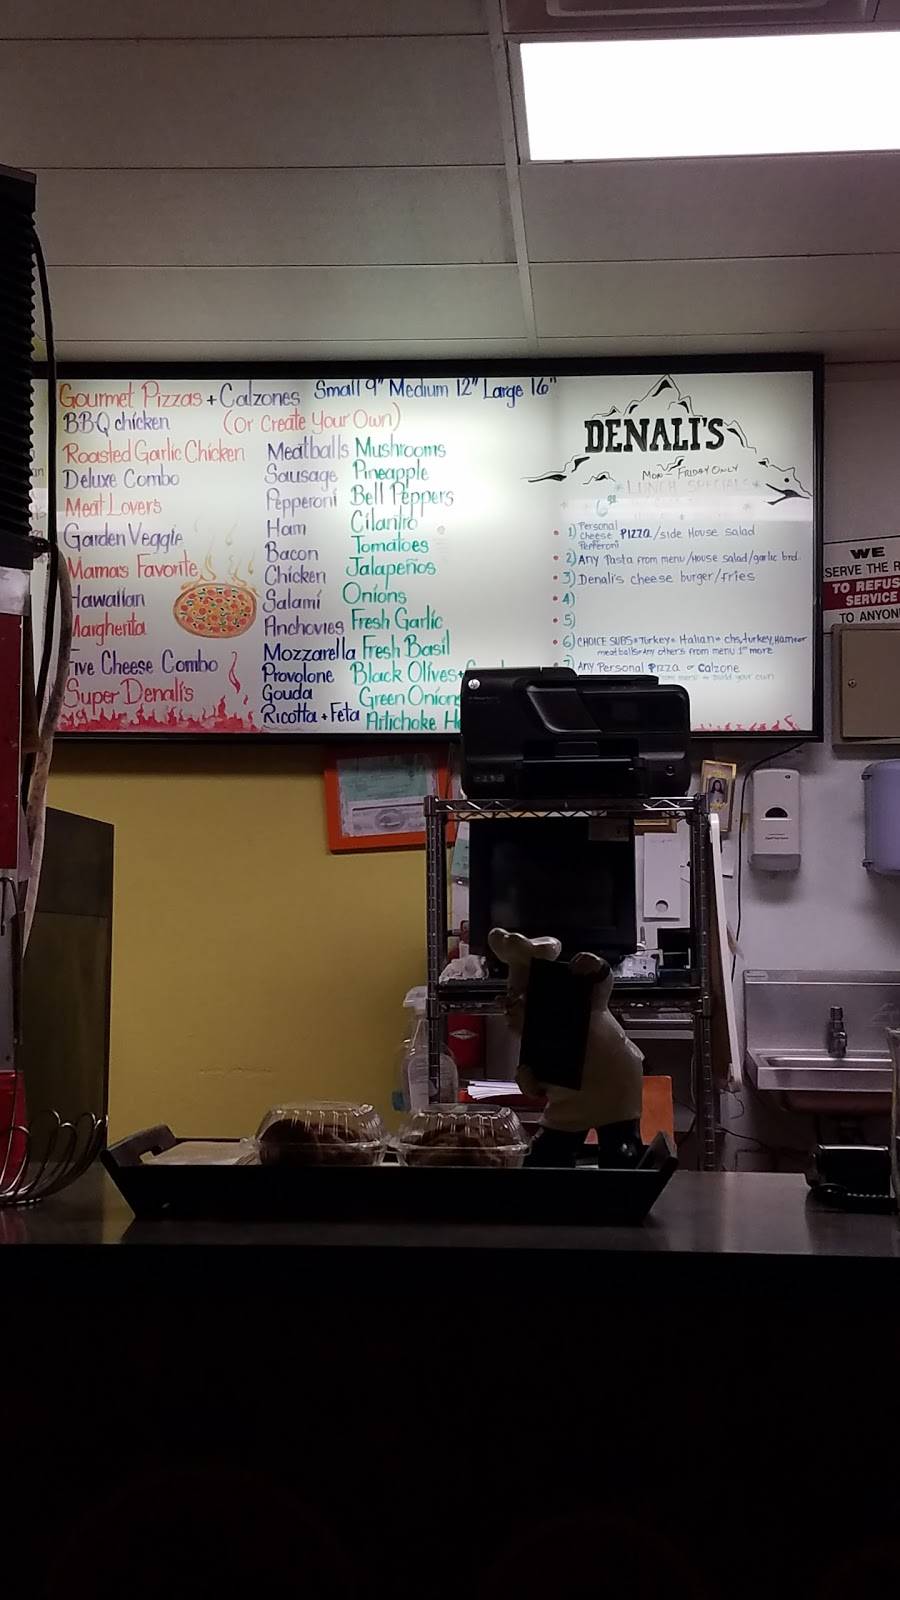 Gourmet Pizzas + Calzones Small 9" Medium 12" Large 16"
BBQ chicken (Or Create Your Own)
Roasted Garlic Chicken
Deluxe Combo
Meat Lovers
Garden Veggie
Mama's Favorite
Hawaiian
Margherita
Five Cheese Combo
Super Denali's
Meatballs
Sausage
Pepperoni
Ham
Bacon
Chicken
Salami
Anchovies
Mozzarella
Provolone
Gouda
Ricotta + Feta
Mushrooms
Pineapple
Bell Peppers
Cilantro
Tomatoes
Jalapeños
Onions
Fresh Garlic
Fresh Basil
Black Olives
Green Onions
Artichoke H
DENALI'S
MON - FRIDAY ONLY
LUNCH SPECIALS
1) Personal Cheese Pepperoni PIZZA/side House salad
2) Any Pasta from menu/House salad/garlic brd.
3) Denali's cheese burger/fries
4)
5)
6) CHOICE SUBS Turkey Italian chs, turkey, Ham or
meatballs Any others from menu 1.00 more
7) Any Personal Pizza or Calzone
from menu or build your own
WE
SERVE THE R
TO REFUS
SERVICE
TO ANYON
hp